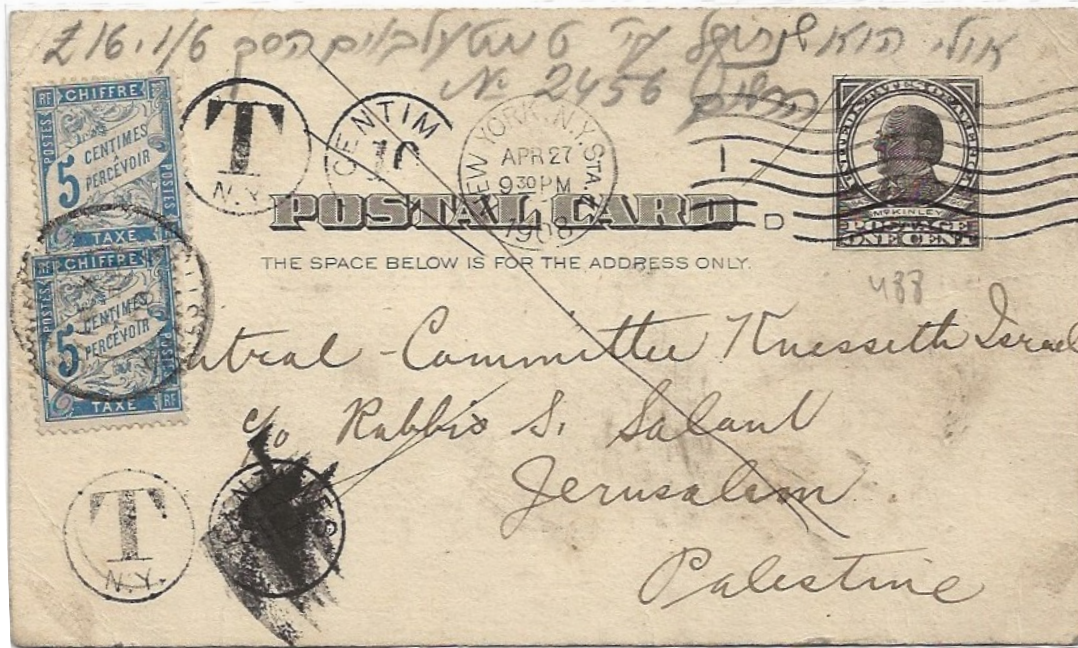 אולי הוא שנתקבל על ט הסך £16.1/6
№ 2456
RF CHIFFRE
POSTES
5 CENTIMES À PERCEVOIR
POSTES
TAXE
RF CHIFFRE
POSTES
5 CENTIMES À PERCEVOIR
POSTES
TAXE RF
T
N.Y.
CENTIM
10
NEW YORK, N.Y. STA.
APR 27
9 30 PM
1908
1
D
UNITED STATES OF AMERICA
McKINLEY
POSTAGE
ONE CENT
POSTAL CARD
THE SPACE BELOW IS FOR THE ADDRESS ONLY.
488
Central - Committee Knesseth Israel
c/o Rabbi S. Salant
Jerusalem
Palestine
T
N.Y.